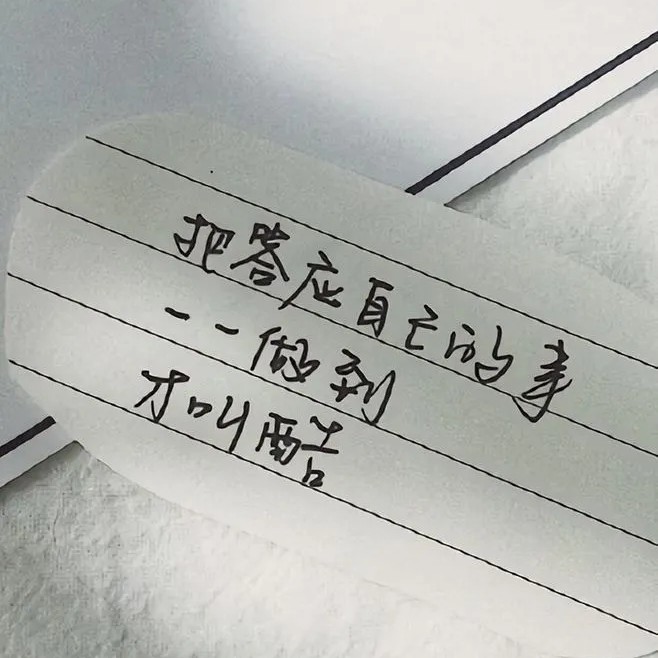 把答应自己的事
一一做到
才叫酷